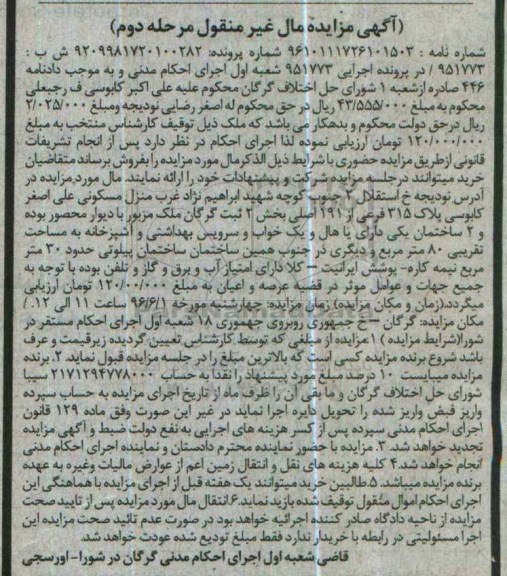 (آگهی مزایده مال غیر منقول مرحله دوم)
شماره نامه : ۹۶۱۰۱۱۱۷۳۶۱۰۱۵۰۳ شماره پرونده: ۹۲۰۹۹۸۱۷۲۰۱۰۰۲۸۲ ش ب :
۹۵۱۷۷۳ / در پرونده اجرایی ۹۵۱۷۷۳ شعبه اول اجرای احکام مدنی و به موجب دادنامه
۴۴۶ صادره ازشعبه ۱ شورای حل اختلاف گرگان محکوم علیه علی اکبر کابوسی ف رجبعلی
محکوم به مبلغ ۴۳/۵۵۵/۰۰۰ ریال در حق محکوم له اصغر رضایی نودیجه ومبلغ ۲/۰۲۵/۰۰۰
ریال درحق دولت محکوم و بدهکار می باشد که ملک ذیل توقیف کارشناس منتخب به مبلغ
۱۲۰/۰۰۰/۰۰۰ تومان ارزیابی نموده لذا اجرای احکام در نظر دارد پس از انجام تشریفات
قانونی ازطریق مزایده حضوری با شرایط ذیل الذکرمال مورد مزایده را بفروش برساند متقاضیان
خرید میتوانند درجلسه مزایده شرکت و پیشنهادات خود را ارائه نمایند. مال مورد مزایده در
آدرس نودیجه خ استقلال ۲ جنوب کوچه شهید ابراهیم نژاد غرب منزل مسکونی علی اصغر
کابوسی پلاک ۳۱۵ فرعی از ۱۹۱ اصلی بخش ۲ ثبت گرگان ملک مزبور با دیوار محصور بوده
و ۲ ساختمان یکی دارای یا هال و یک خواب و سرویس بهداشتی و آشپزخانه به مساحت
تقریبی ۸۰ متر مربع و دیگری در جنوب همین ساختمان ساختمان پیلوتی حدود ۳۰ متر
مربع نیمه کاره- پوشش ایرانیت – کلا دارای امتیاز آب و برق و گاز و تلفن بوده با توجه به
جمیع جهات و عوامل موثر در قضیه عرصه و اعیان به مبلغ ۱۲۰/۰۰/۰۰۰ تومان ارزیابی
میگردد.(زمان و مکان مزایده) زمان مزایده: چهارشنبه مورخه ۹۶/۶/۱ ساعت ۱۱ الی ۱۲. /
مکان مزایده: گرگان –خ جمهوری روبروی جمهوری ۱۸ شعبه اول اجرای احکام مستقر در
شورا(شرایط مزایده ) ۱ مزایده از مبلغی که توسط کارشناس تعیین گردیده زیرقیمت و عرف
باشد شروع برنده مزایده کسی است که بالاترین مبلغ را در جلسه مزایده قبول نماید. ۲. برنده
مزایده میبایست ۱۰ درصد مبلغ مورد پیشنهاد را نقدا به حساب ۲۱۷۱۲۹۴۷۷۸۰۰۰ سیبا
شورای حل اختلاف گرگان و ما بقی آن را ظرف ماه از تاریخ اجرای مزایده به حساب سپرده
واریز قبض واریز شده را تحویل دایره اجرا نماید در غیر این صورت وفق ماده ۱۲۹ قانون
اجرای احکام مدنی سپرده پس از کسر هزینه های اجرایی به نفع دولت ضبط و آگهی مزایده
تجدید خواهد شد. ۳. مزایده با حضور نماینده محترم دادستان و نماینده اجرای احکام مدنی
انجام خواهد شد. ۴ کلیه هزینه های نقل و انتقال زمین اعم از عوارض مالیات وغیره به عهده
برنده مزایده میباشد. ۵.طالبین خرید میتوانند یک هفته قبل از اجرای مزایده با هماهنگی این
اجرای احکام اموال منقول توقیف شده بازید نماید. ۶.انتقال مال مورد مزایده پس از تایید صحت
مزایده از ناحیه دادگاه صادر کننده اجرائیه خواهد بود در صورت عدم تائید صحت مزایده این
اجرا مسئولیتی در رابطه با خریدار ندارد فقط مبلغ تودیع شده عودت خواهد شد.
قاضی شعبه اول اجرای احکام مدنی گرگان در شورا- اورسجی